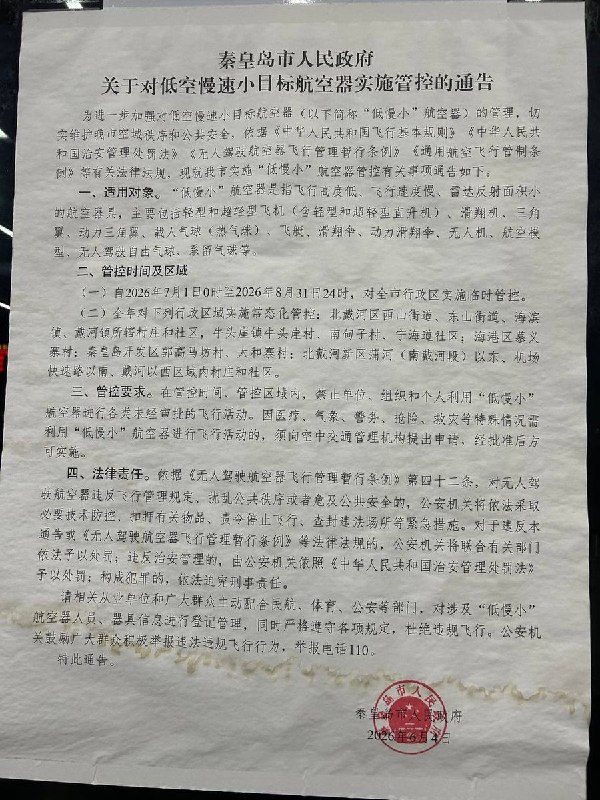 秦皇岛市人民政府
关于对低空慢速小目标航空器实施管控的通告
为进一步加强对低空慢速小目标航空器（以下简称“低慢小”航空器）的管理，切
实维护我市空域秩序和公共安全，依据《中华人民共和国飞行基本规则》《中华人民共
和国治安管理处罚法》《无人驾驶航空器飞行管理暂行条例》《通用航空飞行管制条
例》等有关法律法规，现就我市实施“低慢小”航空器管控有关事项通告如下：
一、适用对象。“低慢小”航空器是指飞行高度低、飞行速度慢、雷达反射面积小
的航空器具，主要包括轻型和超轻型飞机（含轻型和超轻型直升机）、滑翔机、三角
翼、动力三角翼、载人气球（热气球）、飞艇、滑翔伞、动力滑翔伞、无人机、航空模
型、无人驾驶自由气球、系留气球等。
二、管控时间及区域
（一）自2026年7月1日0时至2026年8月31日24时，对全市行政区实施临时管控。
（二）全年对下列行政区域实施常态化管控：北戴河区西山街道、东山街道、海滨
镇、戴河镇所辖村庄和社区，牛头崖镇牛头崖村、南甸子村、宁海道社区；海港区慕义
寨村；秦皇岛开发区郭高马坊村、大和寨村；北戴河新区蒲河（南戴河段）以东、机场
快速路以南、戴河以西区域内村庄和社区。
三、管控要求。在管控时间、管控区域内，禁止单位、组织和个人利用“低慢小”
航空器进行各类未经审批的飞行活动。因医疗、气象、警务、抢险、救灾等特殊情况需
利用“低慢小”航空器进行飞行活动的，须向空中交通管理机构提出申请，经批准后方
可实施。
四、法律责任。依据《无人驾驶航空器飞行管理暂行条例》第四十二条，对无人驾
驶航空器违反飞行管理规定、扰乱公共秩序或者危及公共安全的，公安机关将依法采取
必要技术防控、扣押有关物品、责令停止飞行、查封违法场所等紧急措施。对于违反本
通告或《无人驾驶航空器飞行管理暂行条例》等法律法规的，公安机关将联合有关部门
依法予以处罚；违反治安管理的，由公安机关依照《中华人民共和国治安管理处罚法》
予以处罚；构成犯罪的，依法追究刑事责任。
请相关从业单位和广大群众主动配合民航、体育、公安等部门，对涉及“低慢小”
航空器人员、器具信息进行登记管理，同时严格遵守各项规定，杜绝违规飞行。公安机
关鼓励广大群众积极举报违法违规飞行行为，举报电话110。
特此通告。
秦皇岛市人民政府
2026年6月4日